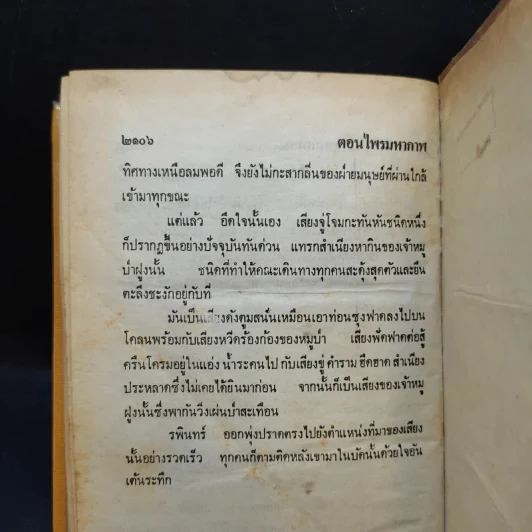 ๒๑๐๖ ตอนไพรมหากาฬ
ทิศทางเหนือลมพอดี จึงยังไม่กะสากลิ่นของฝ่ายมนุษย์ที่ผ่านใกล้
เข้ามาทุกขณะ
แต่แล้ว อึดใจนั้นเอง เสียงจู่โจมกะทันหันชนิดหนึ่ง
ก็ปรากฏขึ้นอย่างปัจจุบันทันด่วน แทรกสำเนียงหากินของเจ้าหมู
ป่าฝูงนั้น ชนิดที่ทำให้คณะเดินทางทุกคนสะดุ้งสุดตัวและยืน
ตะลึงชะงักอยู่กับที่
มันเป็นเสียงดังตูมสนั่นเหมือนเอาท่อนซุงฟาดลงไปบน
โคลนพร้อมกับเสียงหวีดร้องก้องของหมูป่า เสียงฟัดฟาดต่อสู้
ครืนโครมอยู่ในแอ่งน้ำระคนไปกับเสียงขู่คำราม ฮึดฮาด สำเนียง
ประหลาดซึ่งไม่เคยได้ยินมาก่อน จากนั้นก็เป็นเสียงของเจ้าหมู
ฝูงนั้นซึ่งพากันวิ่งเผ่นป่าสะเทือน
รพินทร์ ออกพุ่งปราดตรงไปยังตำแหน่งที่มาของเสียง
นั้นอย่างรวดเร็ว ทุกคนก็ตามติดหลังเขามาในบัดนั้นด้วยใจอัน
เต้นระทึก